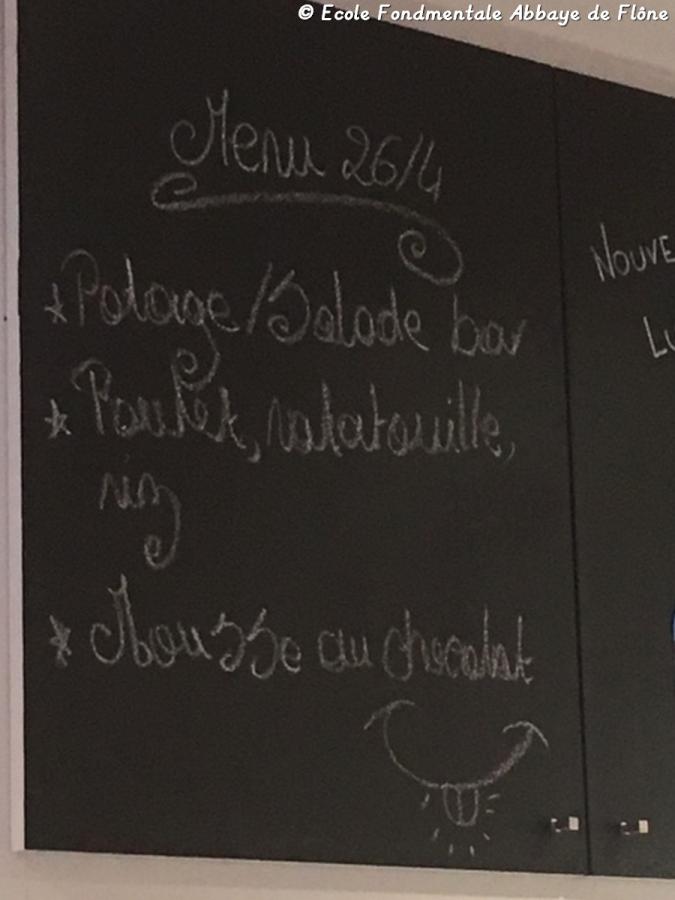 © Ecole Fondmentale Abbaye de Flône
Menu 26/4
* Potage/Salade bar
* Poulet, ratatouille,
riz
* Mousse au chocolat
NOUVE
LU